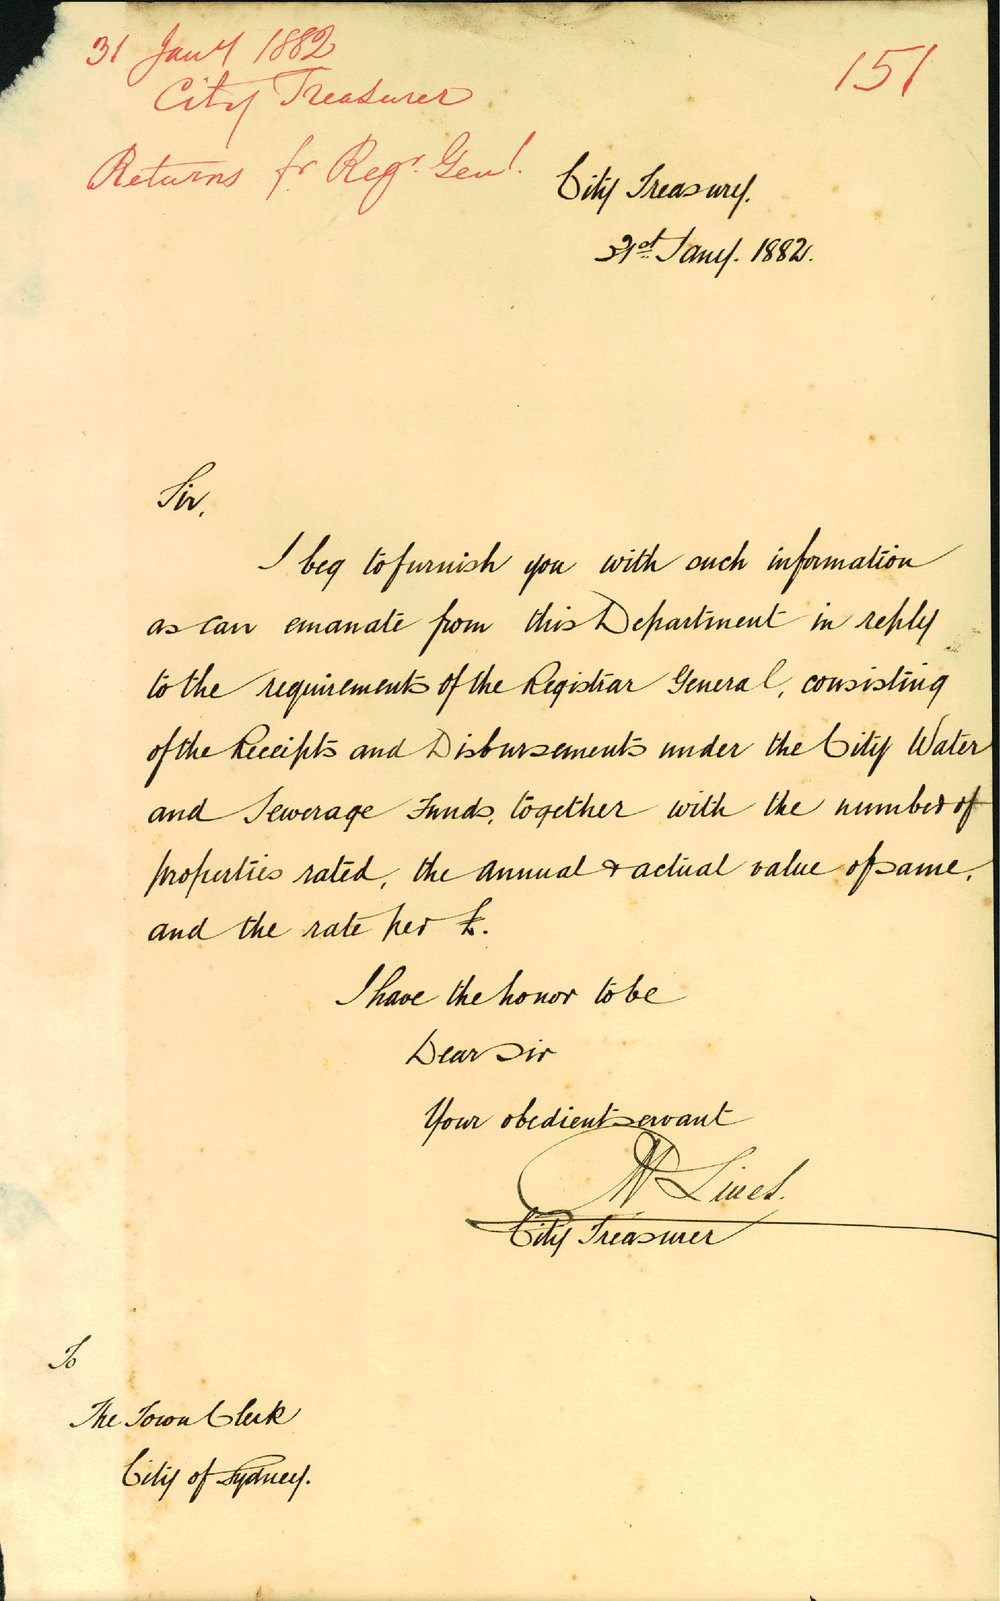 31 Jany 1882
City Treasurer
Returns for Regr. Genl.
151
City Treasury.
31st Jany. 1882.
Sir,
I beg to furnish you with such information
as can emanate from this Department in reply
to the requirements of the Registrar General, consisting
of the Receipts and Disbursements under the City Water
and Sewerage Funds, together with the number of
properties rated, the annual & actual value of same,
and the rate per £.
I have the honor to be
Dear Sir
Your obedient servant
City Treasurer
To
The Town Clerk
City of Sydney.